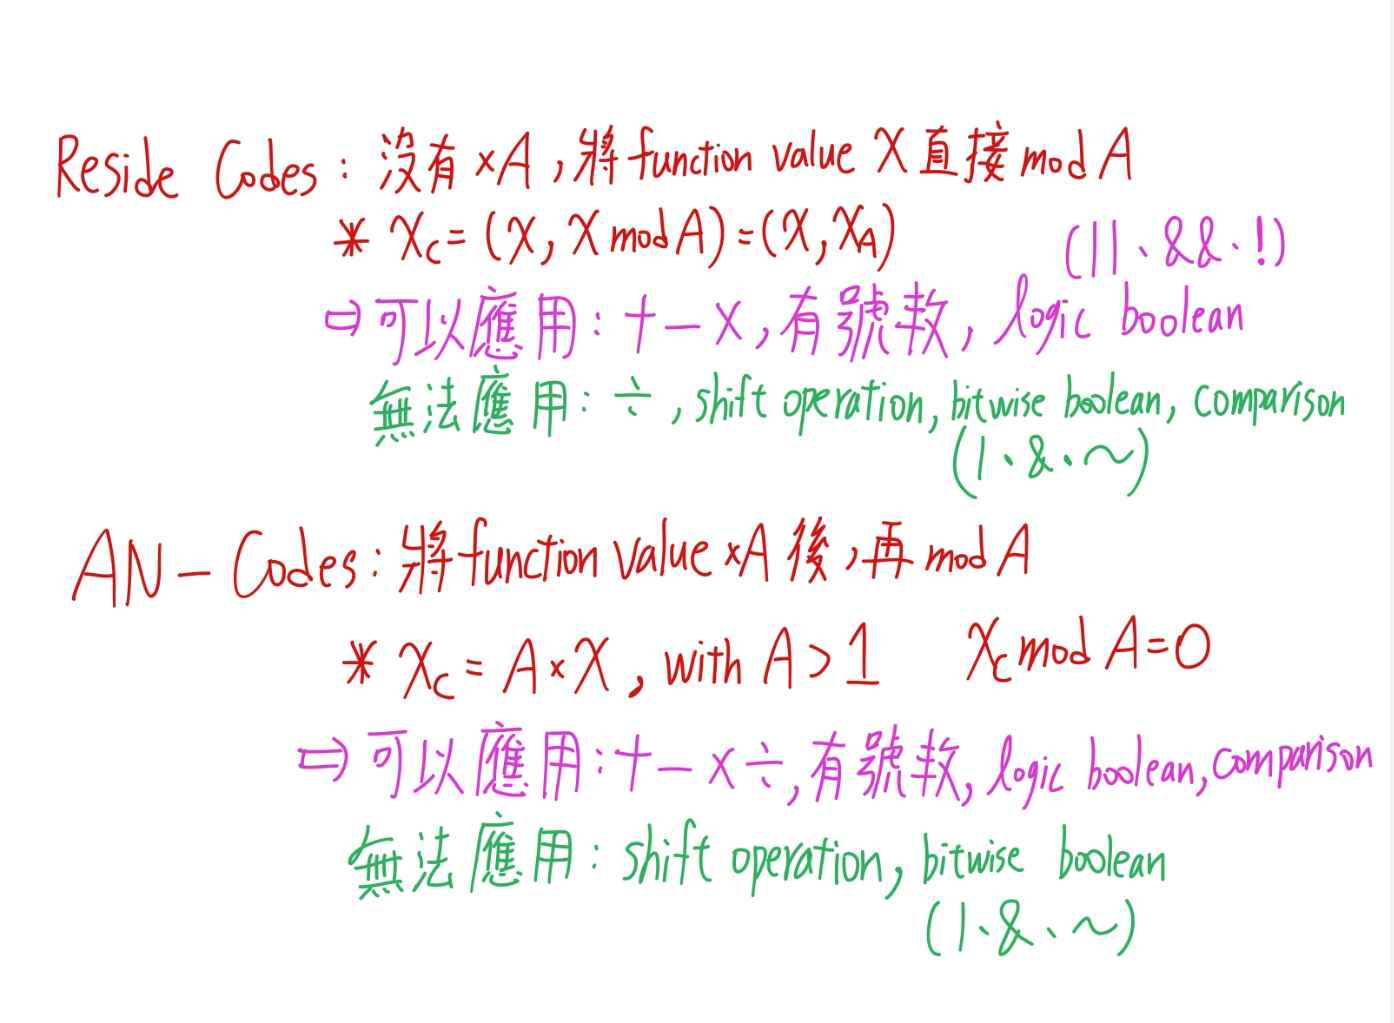 Reside Codes: 沒有×A,將function value X直接mod A
* Xc=(X, X mod A)=(X, XA)
(||、&&、!)
⇨可以應用:+-×,有號數, logic boolean
無法應用:÷,shift operation, bitwise boolean, comparison
(|、&、~)
AN-Codes:將function value ×A後,再mod A
* Xc=A×X, with A>1 Xc mod A=0
⇨可以應用:+-×÷,有號數, logic boolean, comparison
無法應用:shift operation, bitwise boolean
(|、&、~)